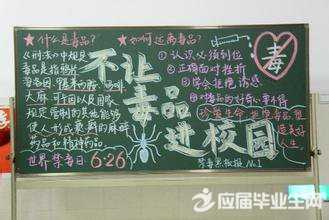 ★什么是毒品?
从刑法的中规定
毒品是指鸦片
大麻
可卡因以及国家
规定管制的其他能够
使人形成瘾癖的麻醉
药品和精神药品
世界禁毒日 6·26
不让
毒品
进校园
★如何远离毒品?
①认识必须到位
②正确面对挫折
③学会拒绝诱惑
④对毒品的好奇心要不得
珍爱生命 拒绝毒品
毒
禁毒黑板报 No.1
应届毕业生网